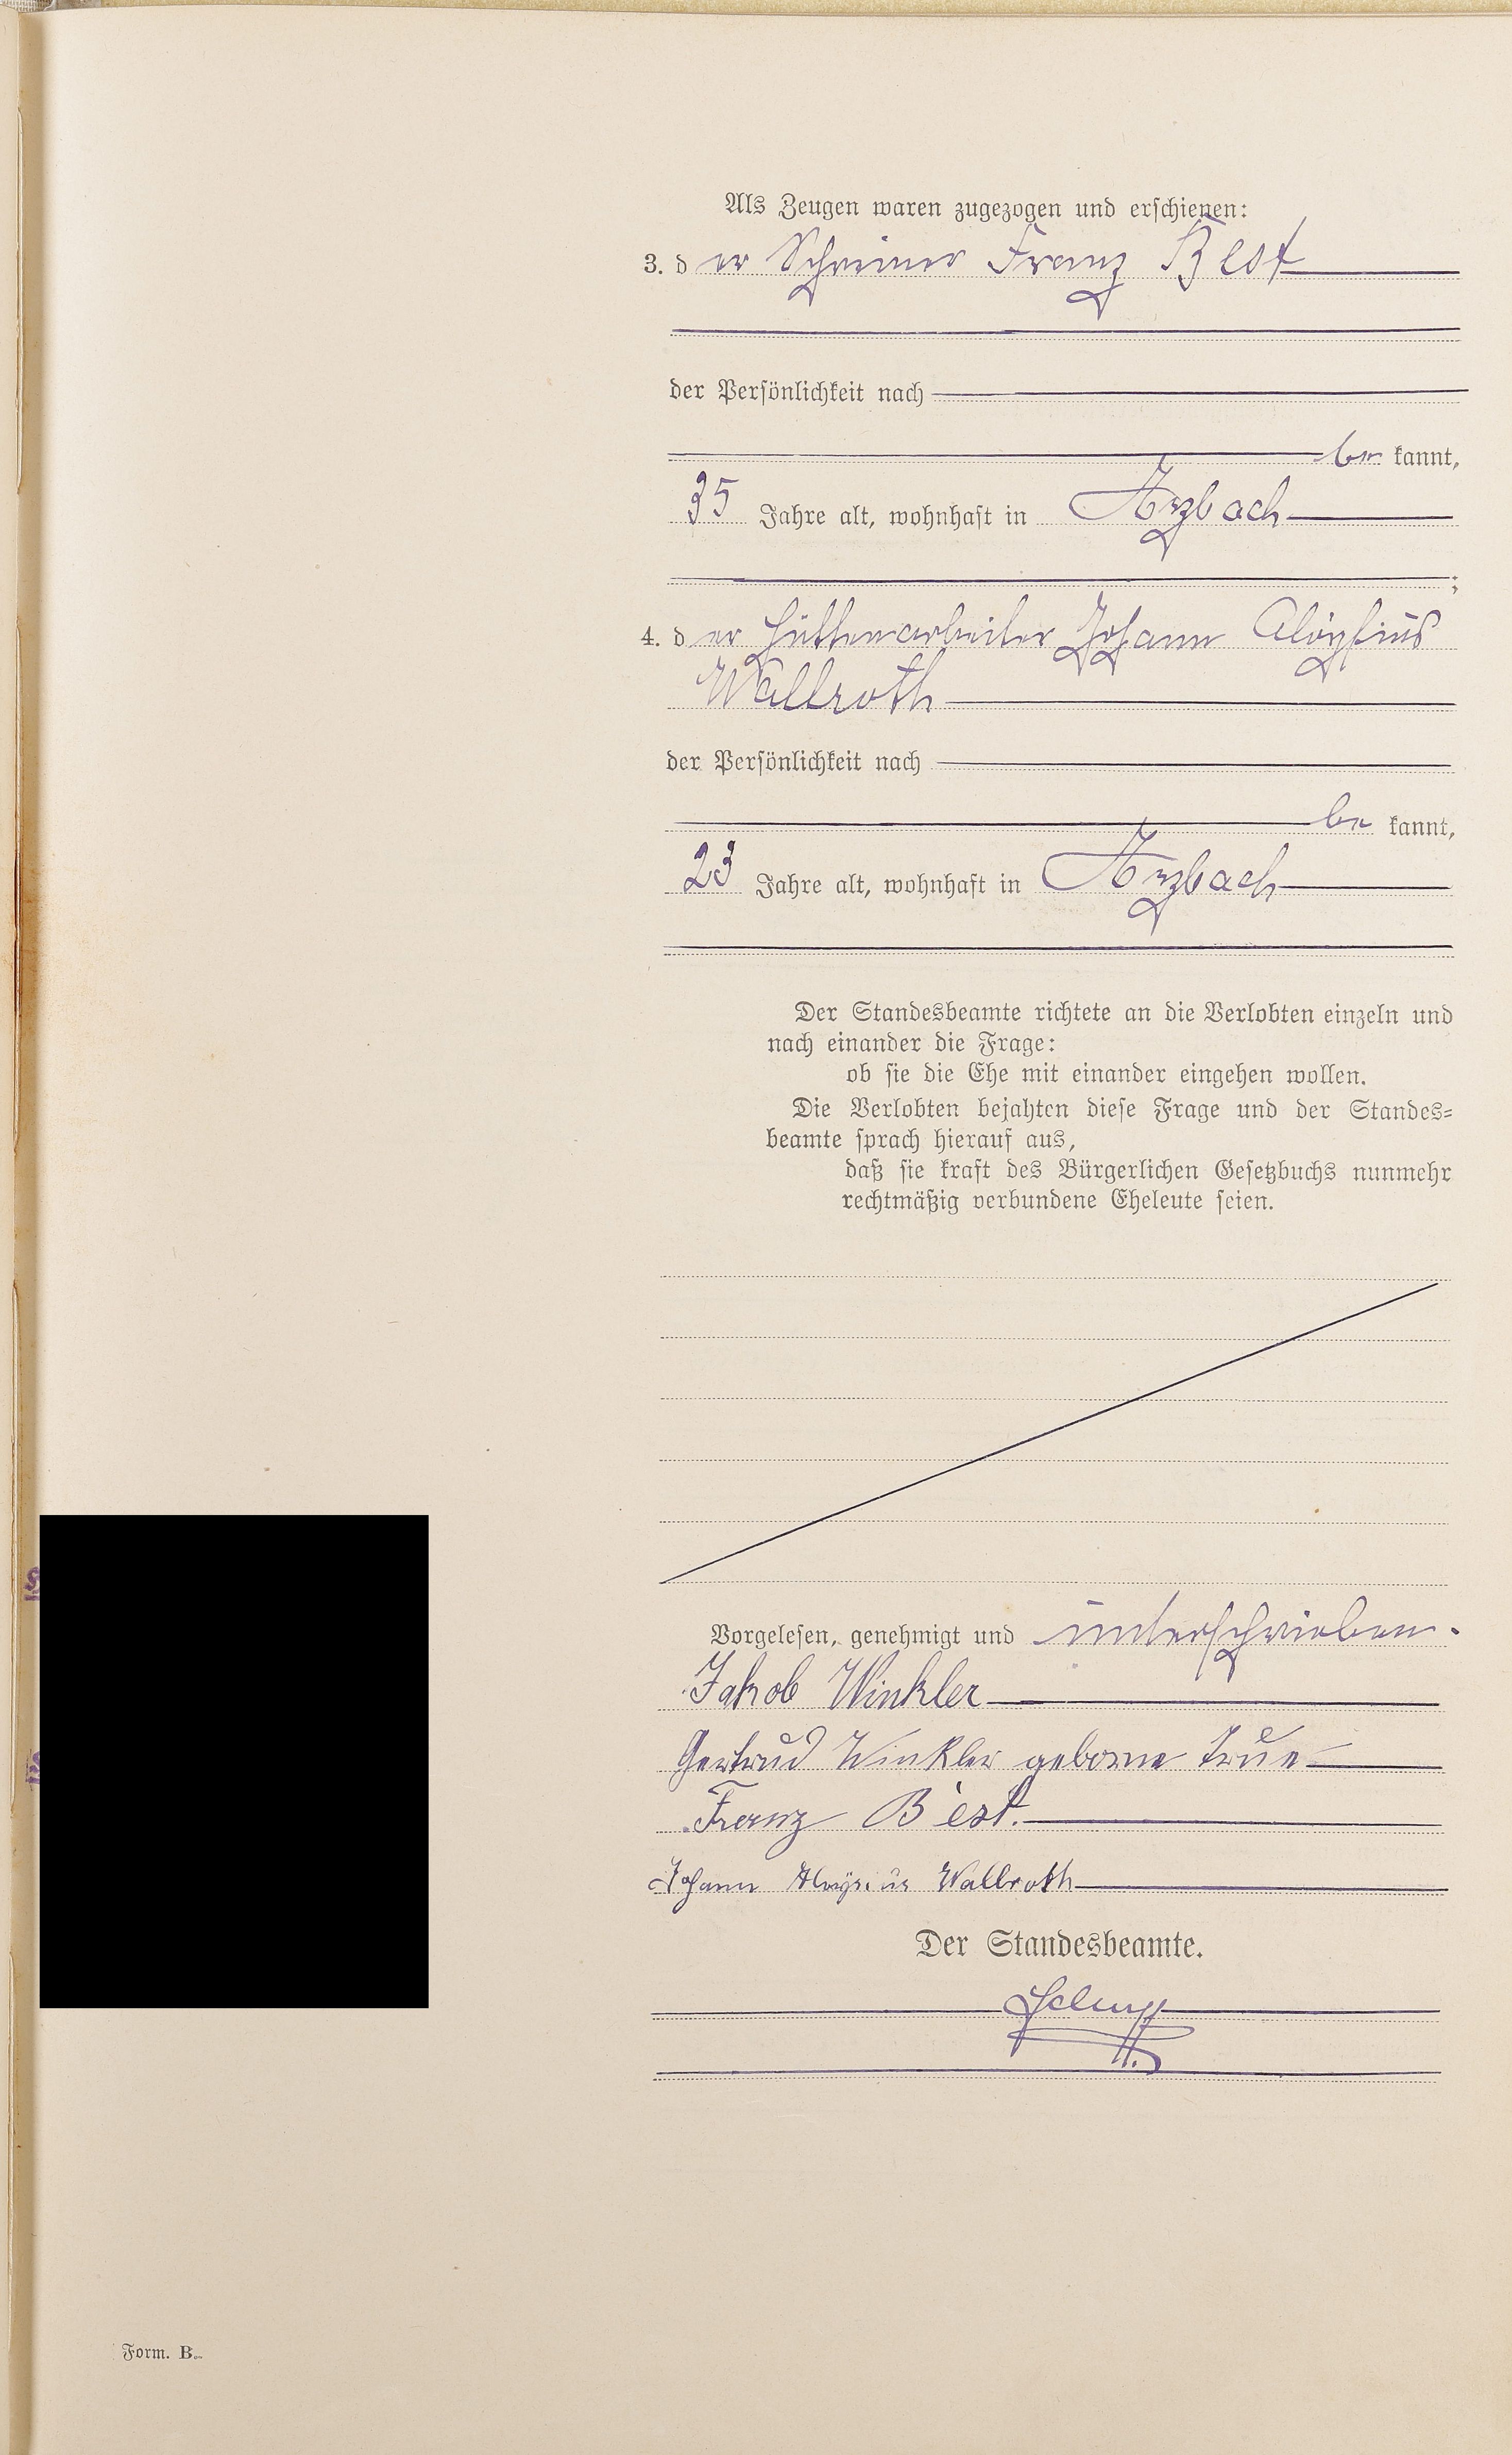 Als Zeugen waren zugezogen und erschienen:
3. der Schreiner Franz Best
der Persönlichkeit nach
be kannt,
35 Jahre alt, wohnhaft in Arzbach
;
4. der Hüttenarbeiter Johann Aloysius
Wallroth
der Persönlichkeit nach
be kannt,
23 Jahre alt, wohnhaft in Arzbach
Der Standesbeamte richtete an die Verlobten einzeln und
nach einander die Frage:
ob sie die Ehe mit einander eingehen wollen.
Die Verlobten bejahten diese Frage und der Standes=
beamte sprach hierauf aus,
daß sie kraft des Bürgerlichen Gesetzbuchs nunmehr
rechtmäßig verbundene Eheleute seien.
Vorgelesen, genehmigt und unterschrieben.
Jakob Winkler
Gertrud Winkler geborne
Franz Best.
Johann Aloysius Wallroth
Der Standesbeamte.
Form. B.